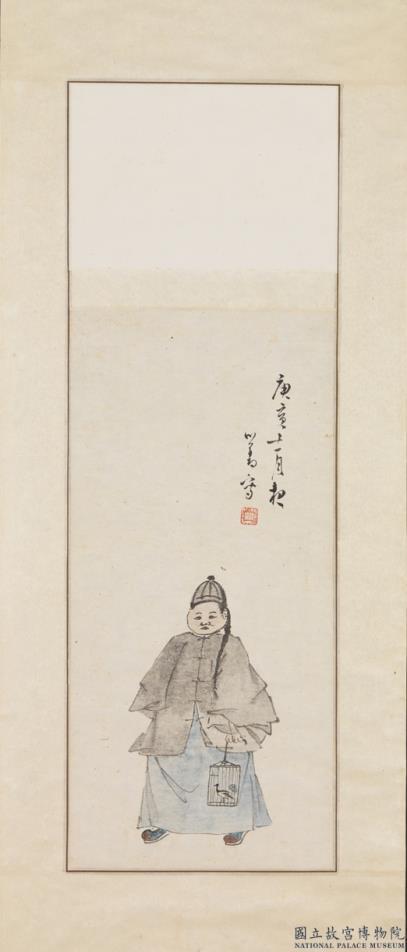 庚寅十一月夜
心畬寫
國立故宮博物院
NATIONAL PALACE MUSEUM